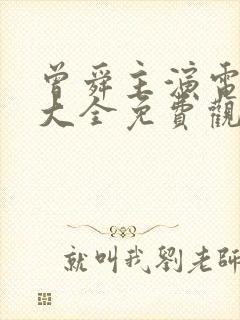 曾舜主演電
大全免費觀
就叫我劉老師